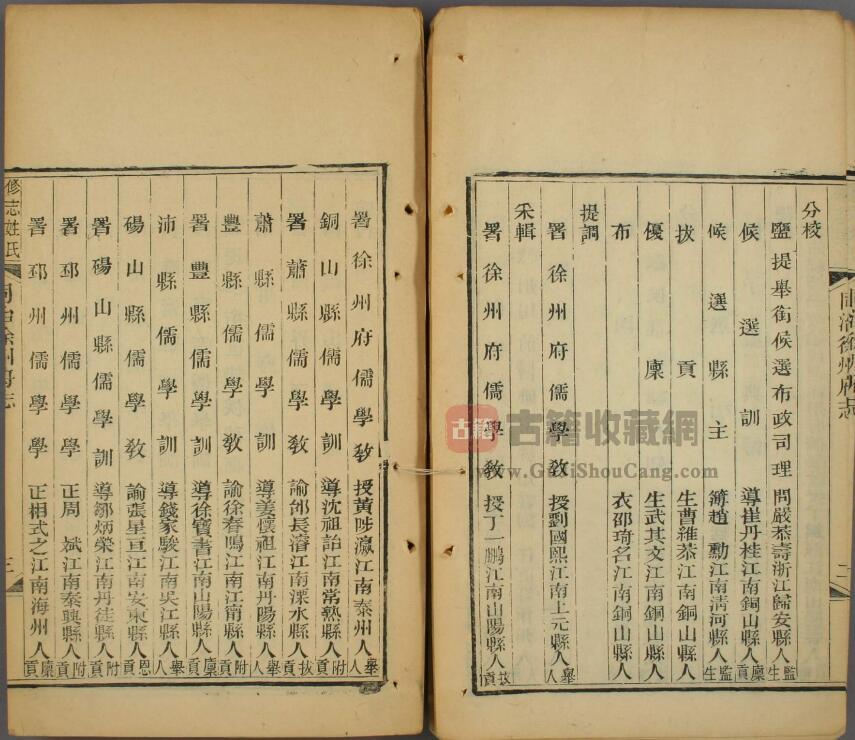 分校
鹽提舉銜候選布政司理問嚴恭壽浙江歸安縣人監生
候選訓導崔丹桂江南銅山縣人廩貢
候選縣主簿趙勳江南清河縣人監生
拔貢生曹維恭江南銅山縣人
優廩生武其文江南銅山縣人
布衣邵琦名江南銅山縣人
提調
署徐州府儒學教授劉國熙江南上元縣人舉人
采輯
署徐州府儒學教授丁一鵬江南山陽縣人拔貢
署徐州府儒學教授黃陟瀛江南泰州人舉人
銅山縣儒學訓導沈祖詒江南常熟縣人附貢
署蕭縣儒學教諭邰長濬江南溧水縣人拔貢
蕭縣儒學訓導姜懷祖江南丹陽縣人舉人
豐縣儒學教諭徐春鳴江南江甯縣人附貢
署豐縣儒學訓導徐寶書江南山陽縣人廩貢
沛縣儒學訓導錢家駿江南吳江縣人舉人
碭山縣儒學教諭張星亘江南安東縣人恩貢
署碭山縣儒學訓導鄒炳榮江南丹徒縣人附貢
署邳州儒學學正周斌江南泰興縣人附貢
署邳州儒學學正相式之江南海州人廩貢
同治徐州府志
修志姓氏
三
二
古籍
古籍收藏網
www.GuJiShouCang.com